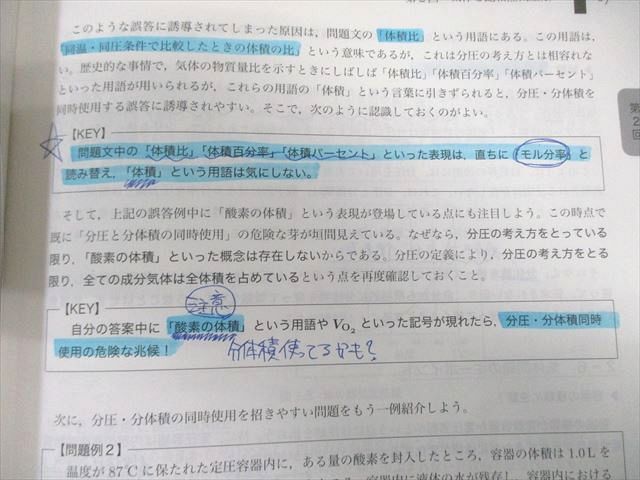 このような誤答に誘導されてしまった原因は，問題文の「体積比」という用語にある。この用語は，
「同温・同圧条件で比較したときの体積の比」という意味であるが，これは分圧の考え方とは相容れな
い。歴史的な事情で，気体の物質量比を示すときにしばしば「体積比」「体積百分率」「体積パーセント」
といった用語が用いられるが，これらの用語の「体積」という言葉に引きずられると，分圧・分体積を
同時使用する誤答に誘導されやすい。そこで，次のように認識しておくのがよい。
第
2
回
【KEY】
問題文中の「体積比」「体積百分率」「体積パーセント」といった表現は，直ちに「モル分率」と
読み替え，「体積」という用語は気にしない。
そして，上記の誤答例中に「酸素の体積」という表現が登場している点にも注目しよう。この時点で
既に「分圧と分体積の同時使用」の危険な芽が垣間見えている。なぜなら，分圧の考え方をとっている
限り，「酸素の体積」といった概念は存在しないからである。分圧の定義により，分圧の考え方をとる
限り，全ての成分気体は全体積を占めているという点を再度確認しておくこと。
【KEY】
注意
自分の答案中に「酸素の体積」という用語や V_O₂ といった記号が現れたら，分圧・分体積同時
使用の危険な兆候！
分体積使ってるかも？
次に，分圧・分体積の同時使用を招きやすい問題をもう一例紹介しよう。
【問題例2】
温度が 87℃ に保たれた定圧容器内に，ある量の酸素を封入したところ，容器の体積は 1.0 L を
容器内に液体の水が残存し，容器内における